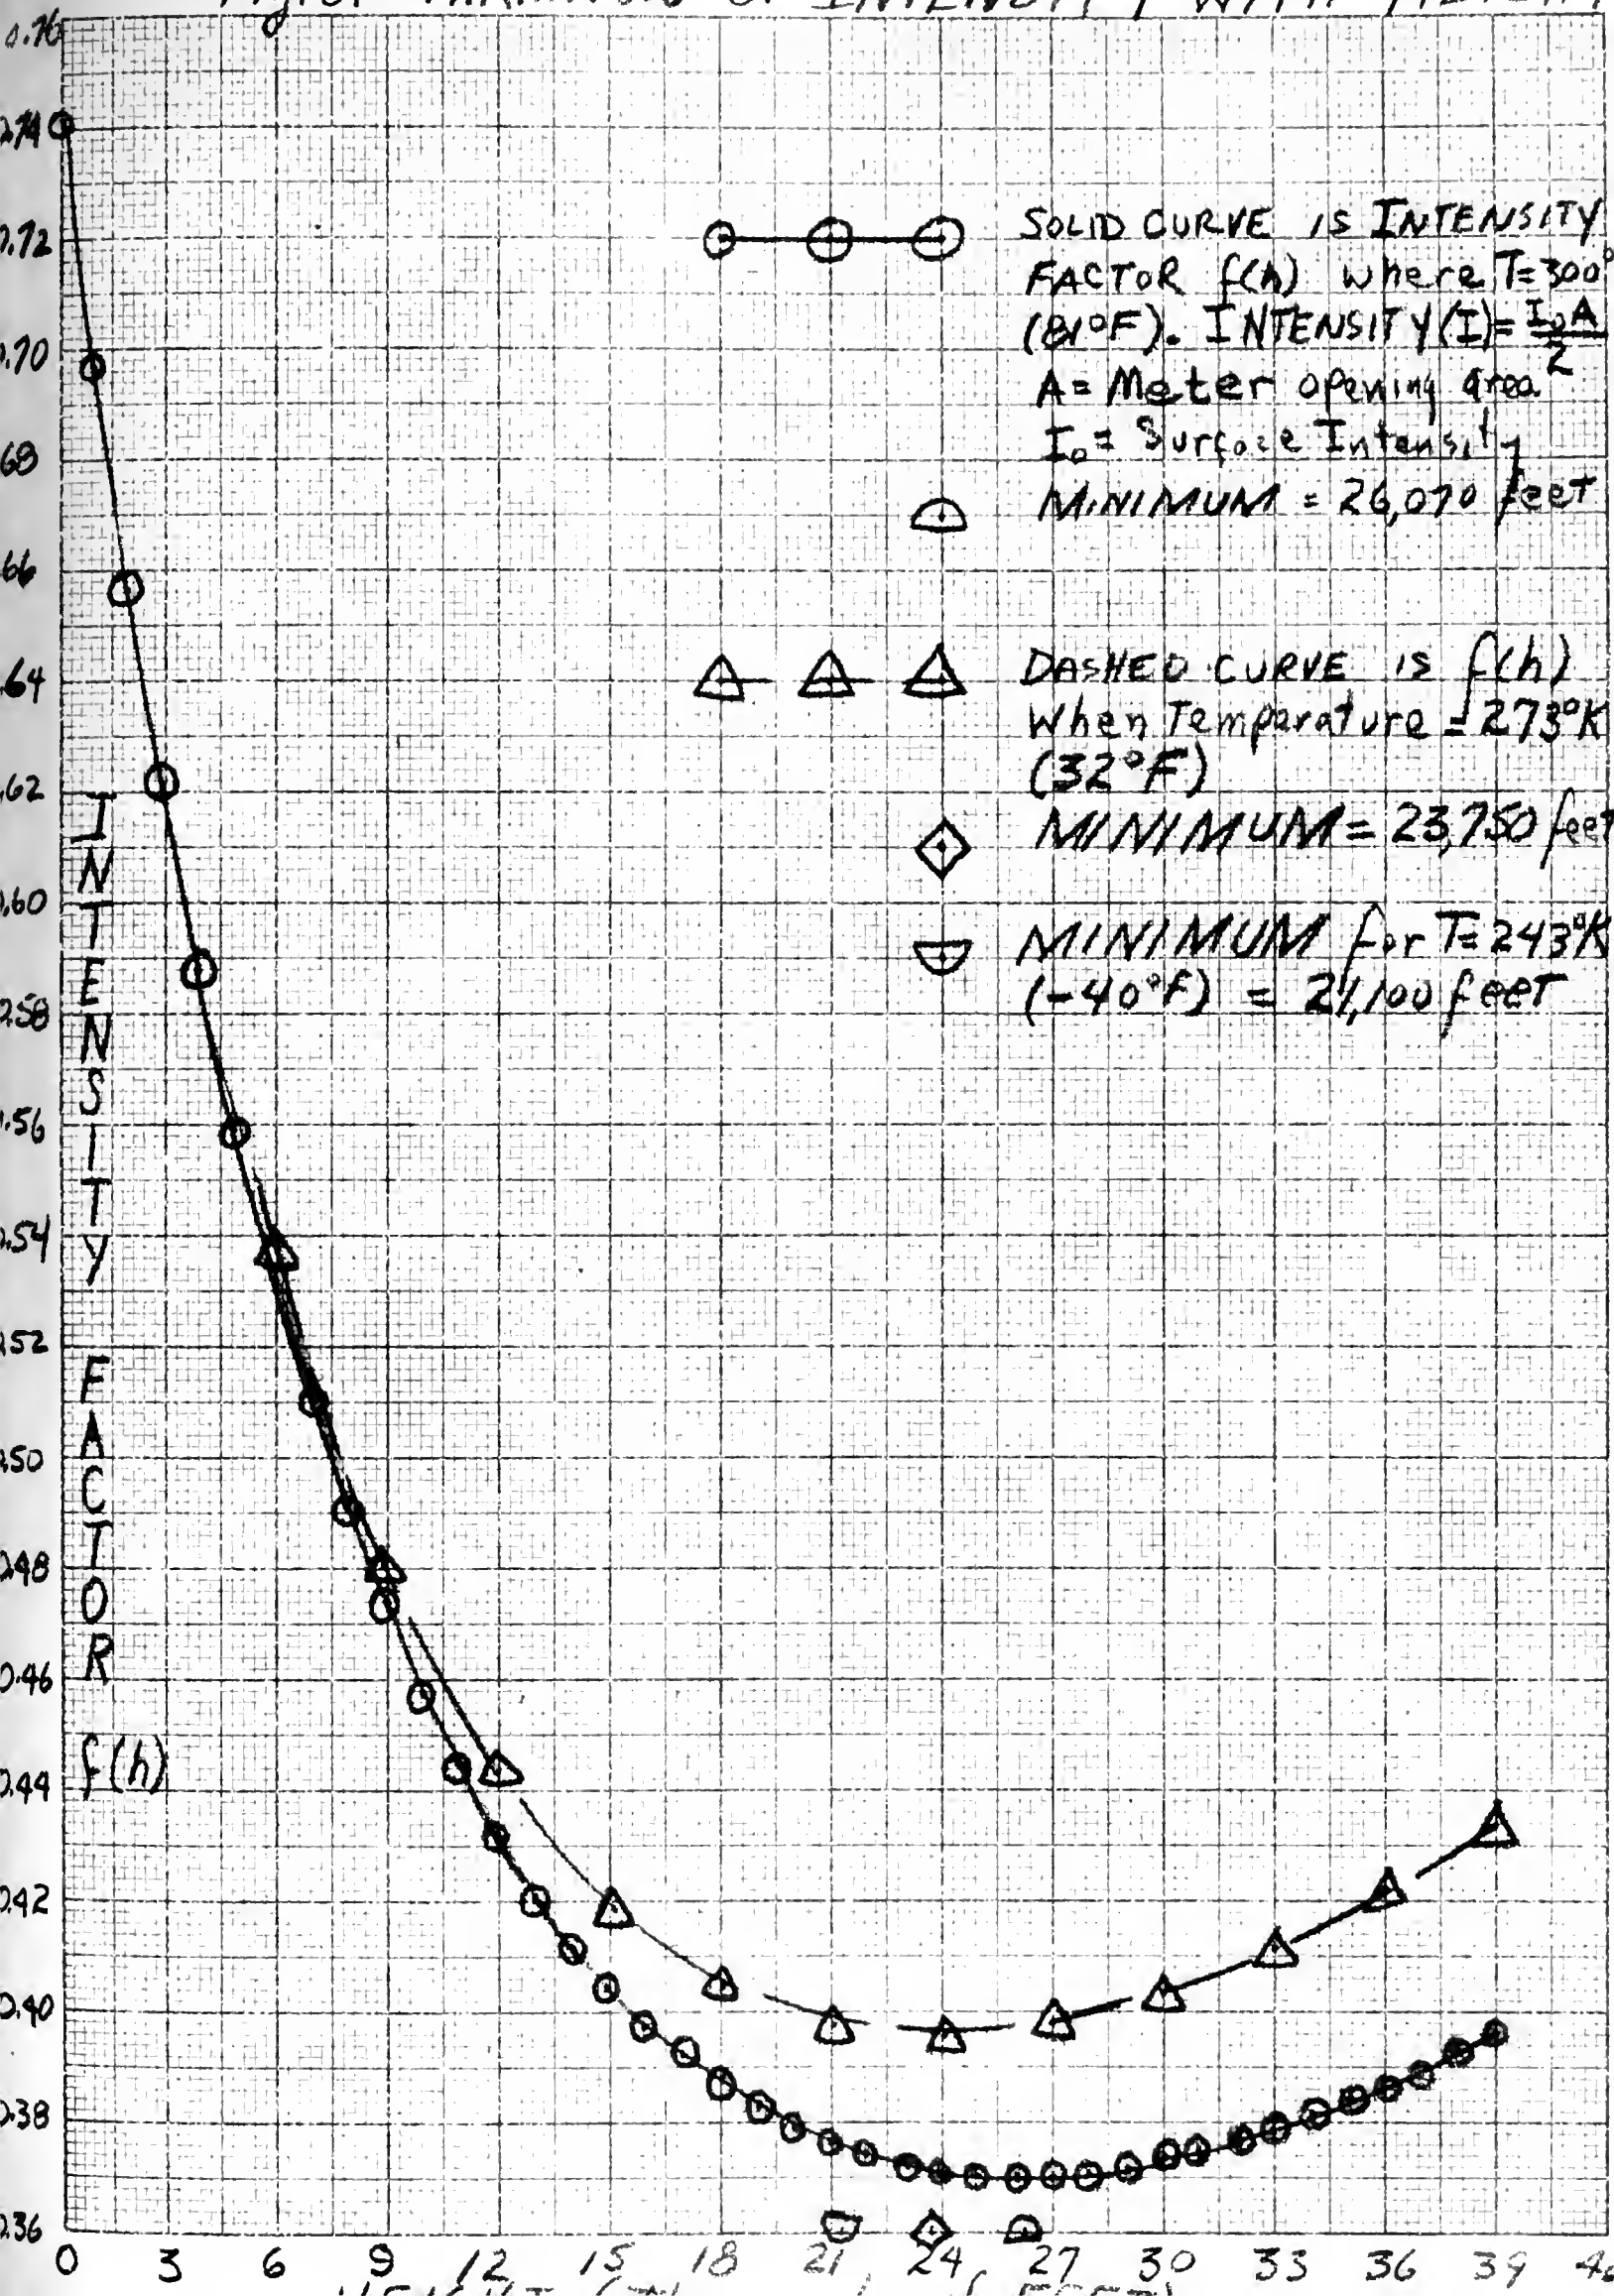 VARIATION OF INTENSITY WITH
0.76
0.74
0.72
0.70
.68
.66
.64
.62
0.60
0.58
0.56
0.54
0.52
0.50
0.48
0.46
0.44
0.42
0.40
0.38
0.36
INTENSITY FACTOR
f(h)
SOLID CURVE IS INTENSITY
FACTOR f(h) where T=300°
(81°F). INTENSITY(I)= I₀A/2
A= Meter opening area
I₀= Surface Intensity
MINIMUM = 26,070 feet
DASHED CURVE IS f(h)
When Temparature = 273°K
(32°F)
MINIMUM= 23,750 feet
MINIMUM for T=243°K
(-40°F) = 21,100 feet
0 3 6 9 12 15 18 21 24 27 30 33 36 39
HEIGHT FEET)